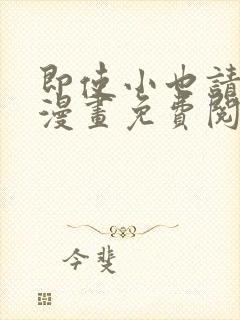 即使小也請
漫畫免費閱
今斐